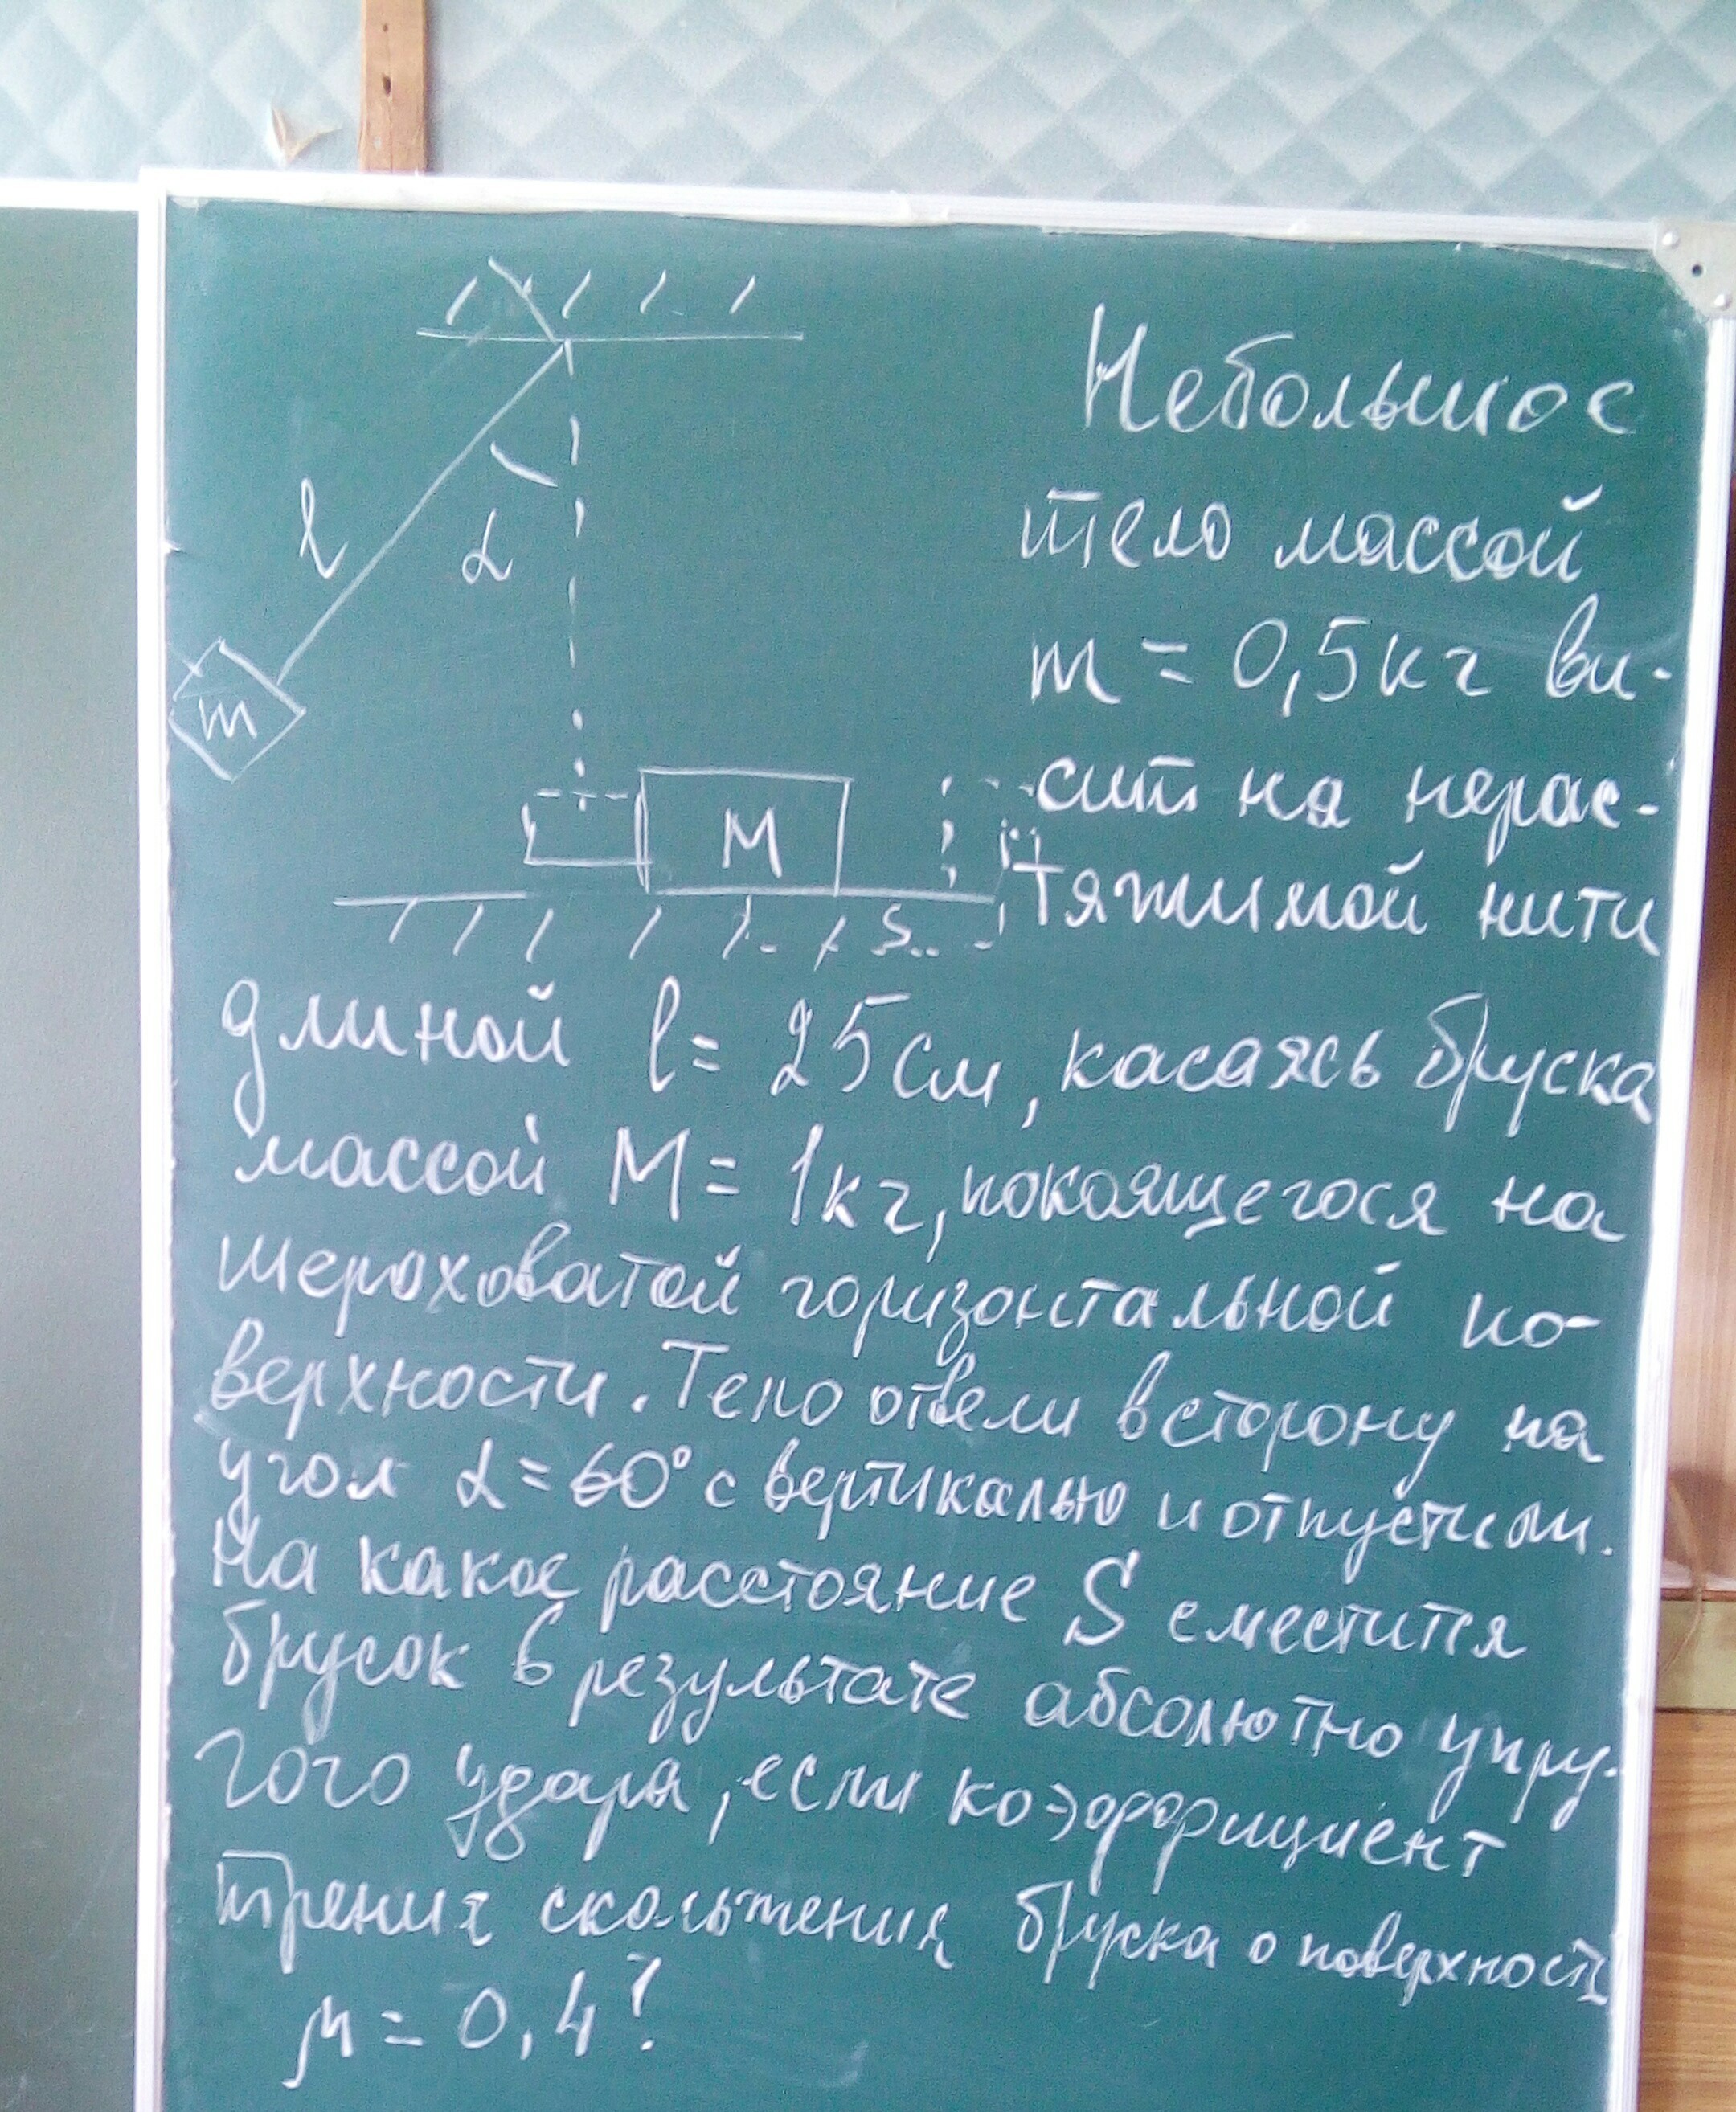 Небольшое
тело массой
m = 0,5 кг ви-
сит на нерас-
тяжимой нити
l
α
m
M
S
длиной l = 25 см, касаясь бруска
массой M = 1 кг, покоящегося на
шероховатой горизонтальной по-
верхности. Тело отвели в сторону на
угол α = 60° с вертикалью и отпустили.
На какое расстояние S сместится
брусок в результате абсолютно упру-
гого удара, если коэффициент
трения скольжения бруска о поверхность
μ = 0,4?